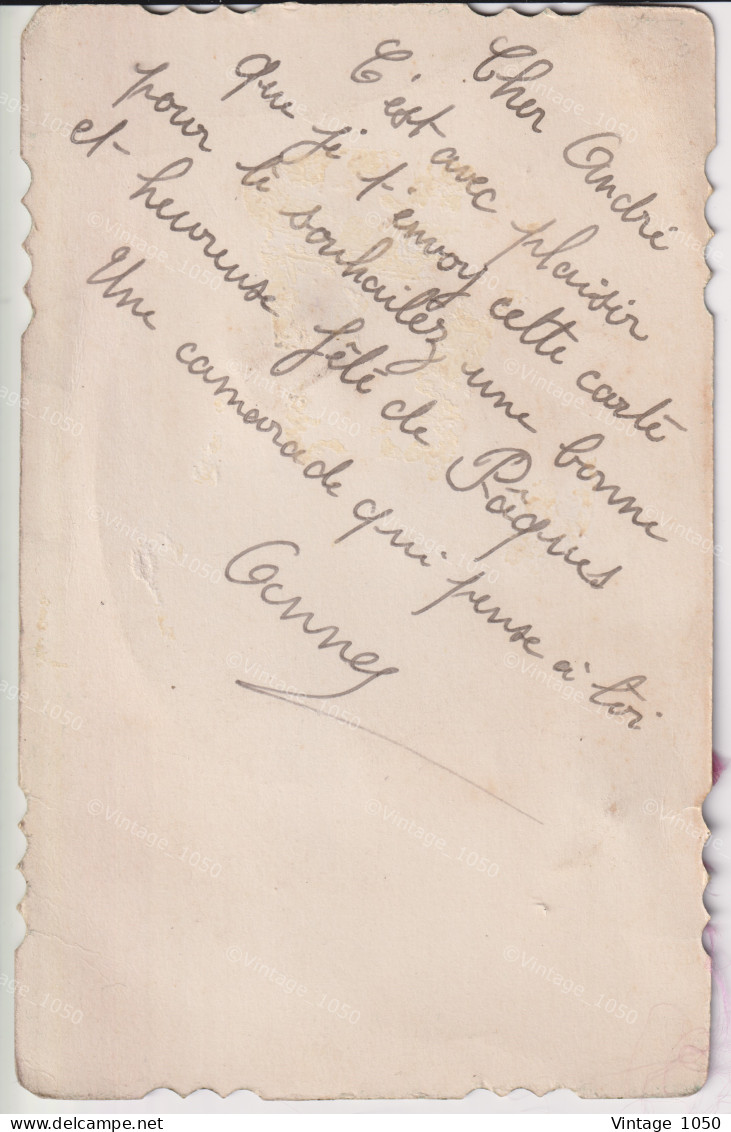 Cher André
C'est avec plaisir
que je t'envoy cette carte
pour te souhaitez une bonne
et heureuse fête de Pâques
Une camarade qui pense à toi
Annes
©Vintage_1050
Vintage 1050